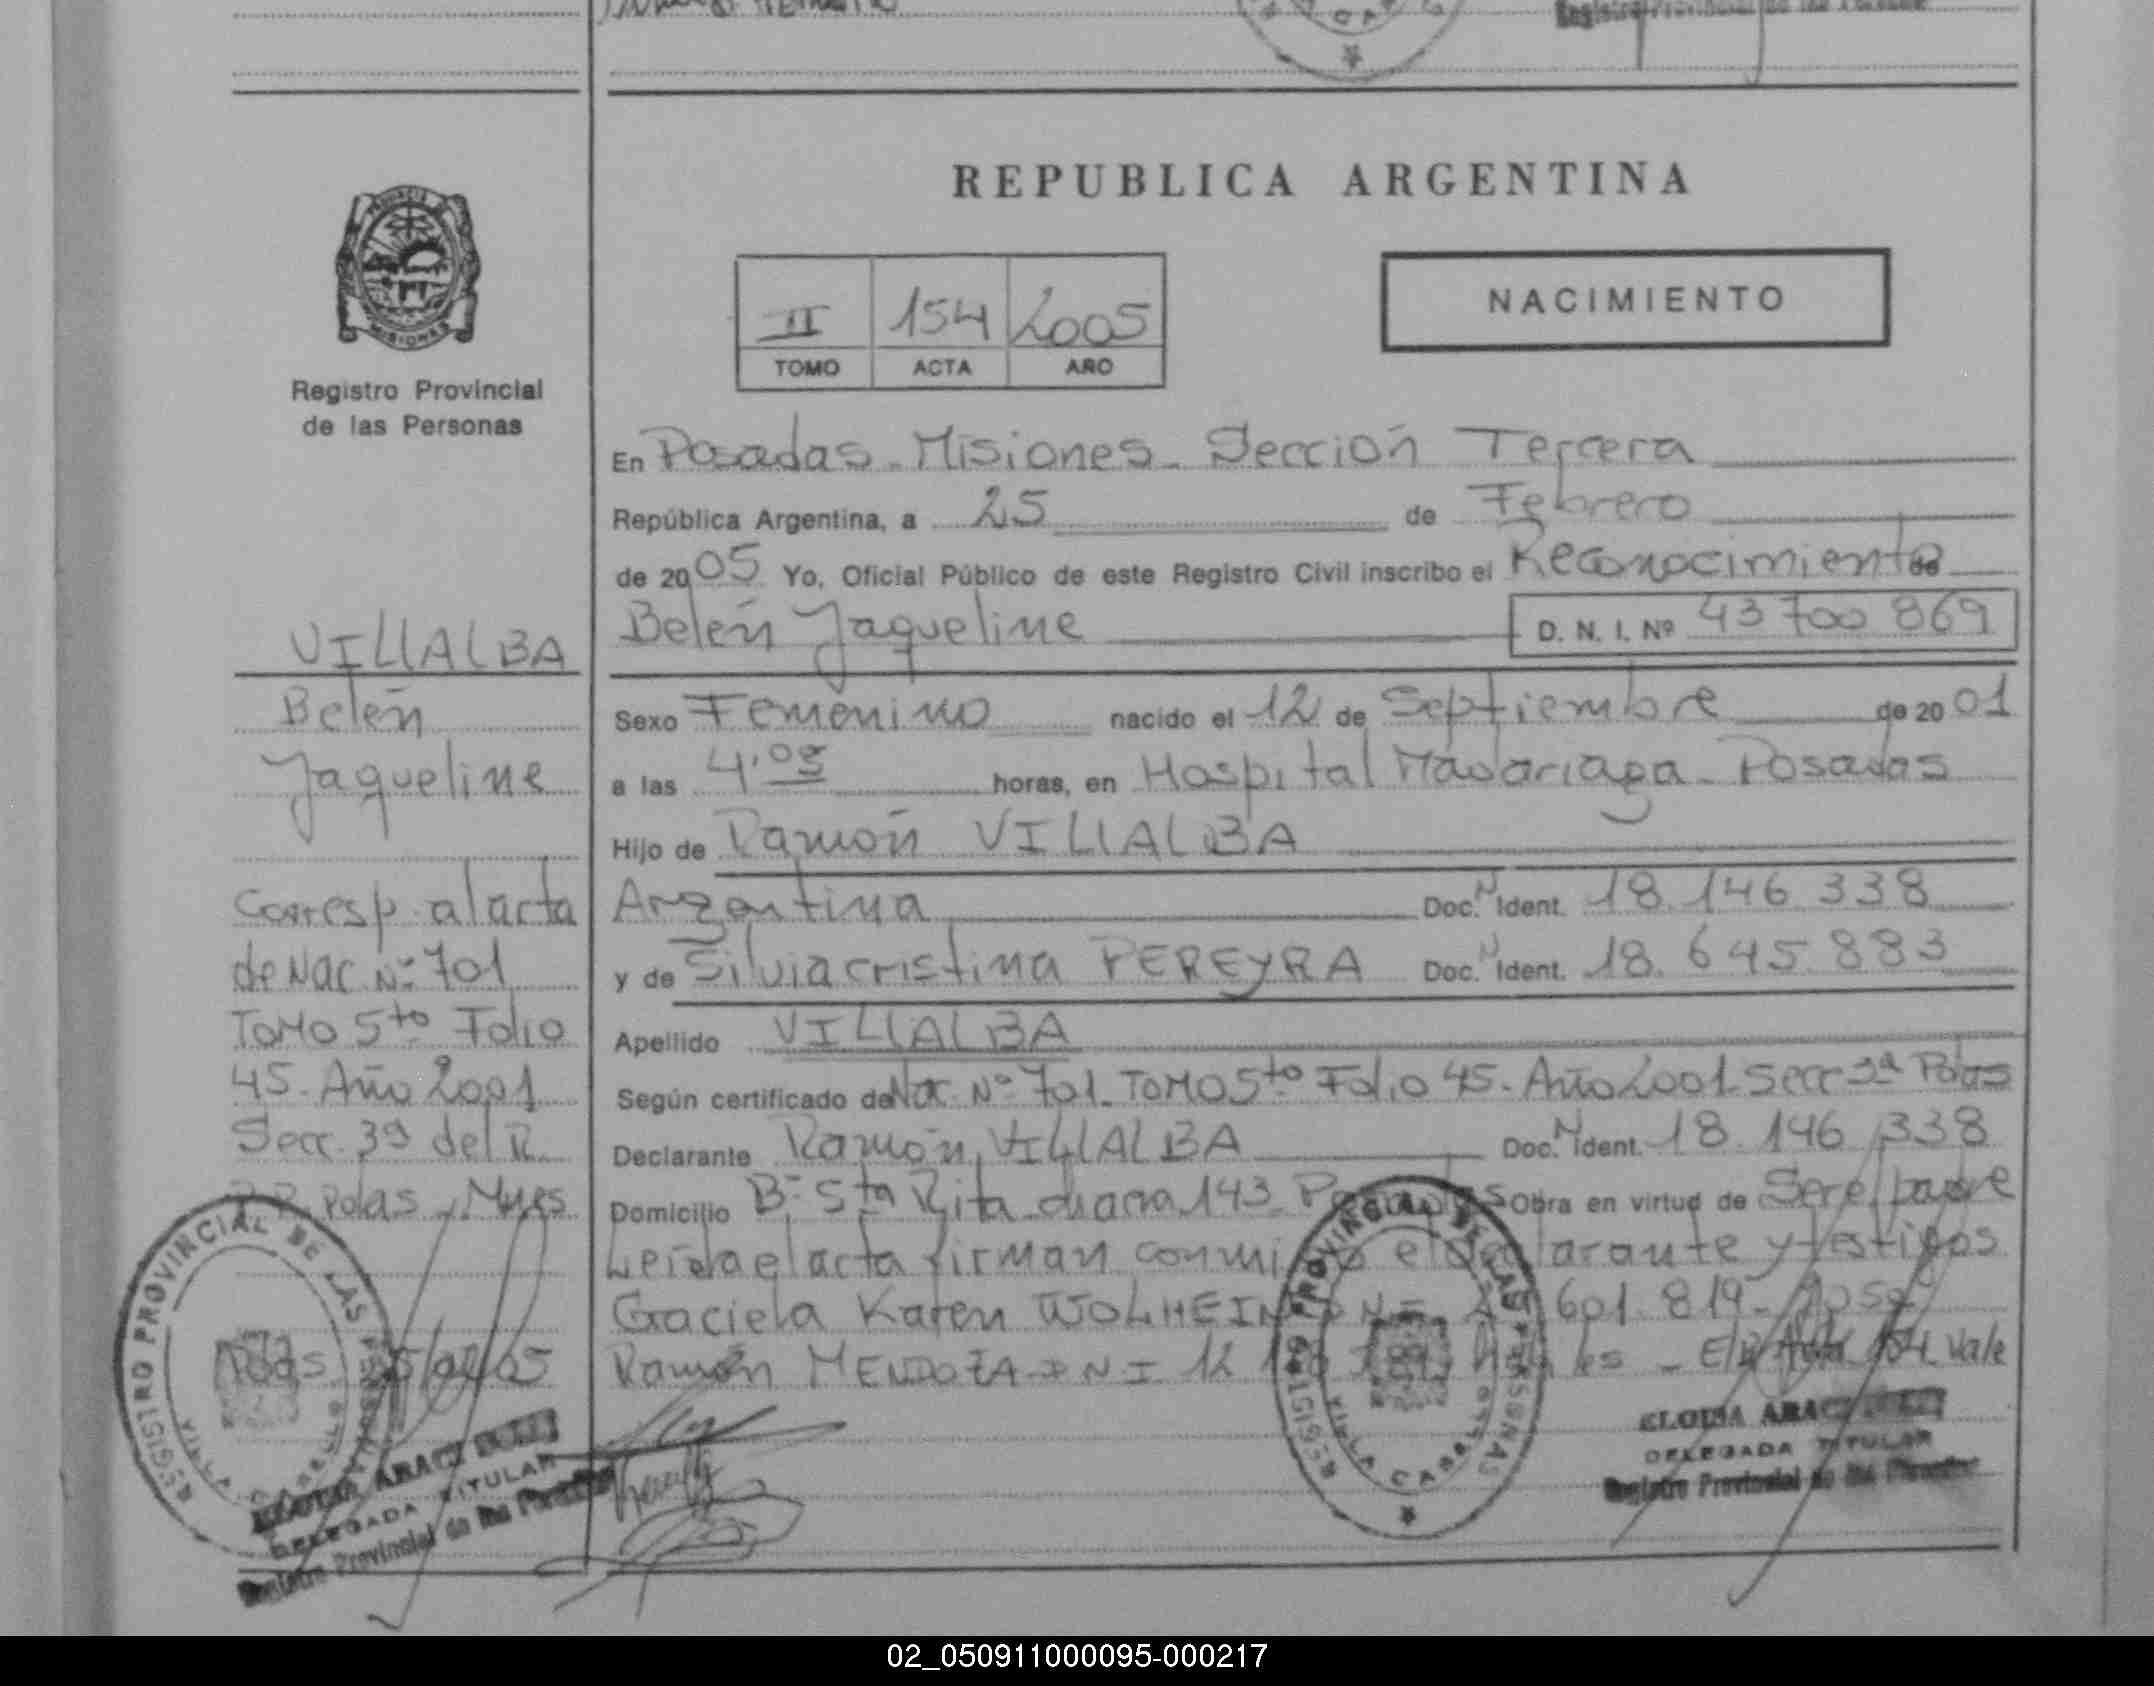 REPUBLICA ARGENTINA
PROVINCIA DE MISIONES
Registro Provincial
de las Personas
II 154 2005
TOMO ACTA AÑO
NACIMIENTO
En Posadas - Misiones - Sección Tercera
República Argentina, a 25 de Febrero
de 2005 Yo, Oficial Público de este Registro Civil inscribo el Reconocimiento de
Belén Jaqueline D. N. I. Nº 43 700 869
Sexo Femenino nacido el 12 de Septiembre de 2001
a las 4,05 horas, en Hospital Madariaga - Posadas
Hijo de Ramón VILLALBA
Argentina Doc. N Ident. 18.146.338
y de Silvia cristina PEREYRA Doc. N Ident. 18.645.883
Apellido VILLALBA
Según certificado de Nac. Nº 701 - TOMO 5to Folio 45 - Año 2001 - Secc 3ª Pdas
Declarante Ramón VILLALBA Doc. N Ident. 18.146.338
Domicilio Bº Sta Rita chacra 143 - Posadas Obra en virtud de Ser el padre
Leída el acta firman conmigo el declarante y testigos
Graciela Karen 601.819 -
Ramón MENDOZA DNI 12 - Acta 154 Vale
VILLALBA
Belén
Jaqueline
Corresp. al acta
de Nac. Nº 701
TOMO 5to Folio
45 - Año 2001
Secc. 3ª del R.
P.P. Pdas - Mnes
Pdas
REGISTRO PROVINCIAL DE LAS PERSONAS
VILLA CABELLO
DELEGADA TITULAR
Registro Provincial de las Personas
REGISTRO PROVINCIAL DE LAS PERSONAS
VILLA CABELLO
DELEGADA TITULAR
Registro Provincial de las Personas
02_050911000095-000217